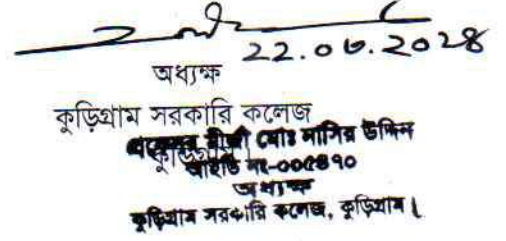 22.০৬.2০২৪
অধ্যক্ষ
কুড়িগ্রাম সরকারি কলেজ
কুড়িগ্রাম।
প্রফেসর মীর্জা মোঃ নাসির উদ্দিন
আইডি নং-০০৫৪৭০
অধ্যক্ষ
কুড়িগ্রাম সরকারি কলেজ, কুড়িগ্রাম।